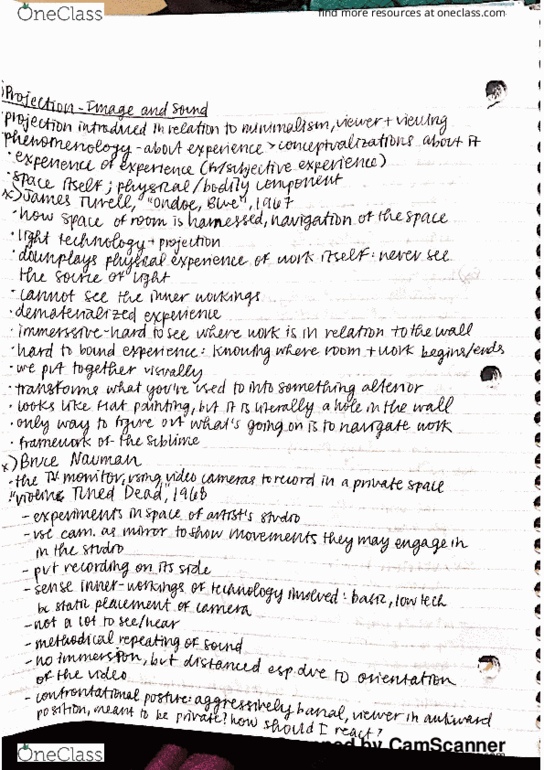 OneClass
find more resources at oneclass.com
Projection - Image and Sound
projection introduced in relation to minimalism, viewer + viewing
phenomenology - about experience > conceptualizations about it
· experience of experience (h/subjective experience)
· space itself; physical/bodily component
x) James Turell, "Ondoe, Blue", 1967
- how space of room is harnessed, navigation of the space
· light technology + projection
· downplays physical experience of work itself: never see
the source of light
· cannot see the inner workings
· dematerialized experience
· immerssive - hard to see where work is in relation to the wall
· hard to bound experience: knowing where room + work begins/ends
· we put together visually
· transforms what you're used to into something alterior
· looks like flat painting, but it is literally a hole in the wall
· only way to figure out what's going on is to navigate work
· framework of the sublime
x) Bruce Nauman
- the TV monitor, using video cameras to record in a private space
Tuned Dead," 1968
- experiments in space of artist's studio
- use cam. as mirror to show movements they may engage in
in the studio
- put recording on its side
- sense inner-workings of technology involved: basic, low tech
bc static placement of camera
- not a lot to see/hear
- methodical repeating of sound
- no immersion, but distanced esp due to orientation
of the video
- confrontational posture: aggressively banal, viewer in awkward
position, meant to be private? how should I react?
by CamScanner
OneClass